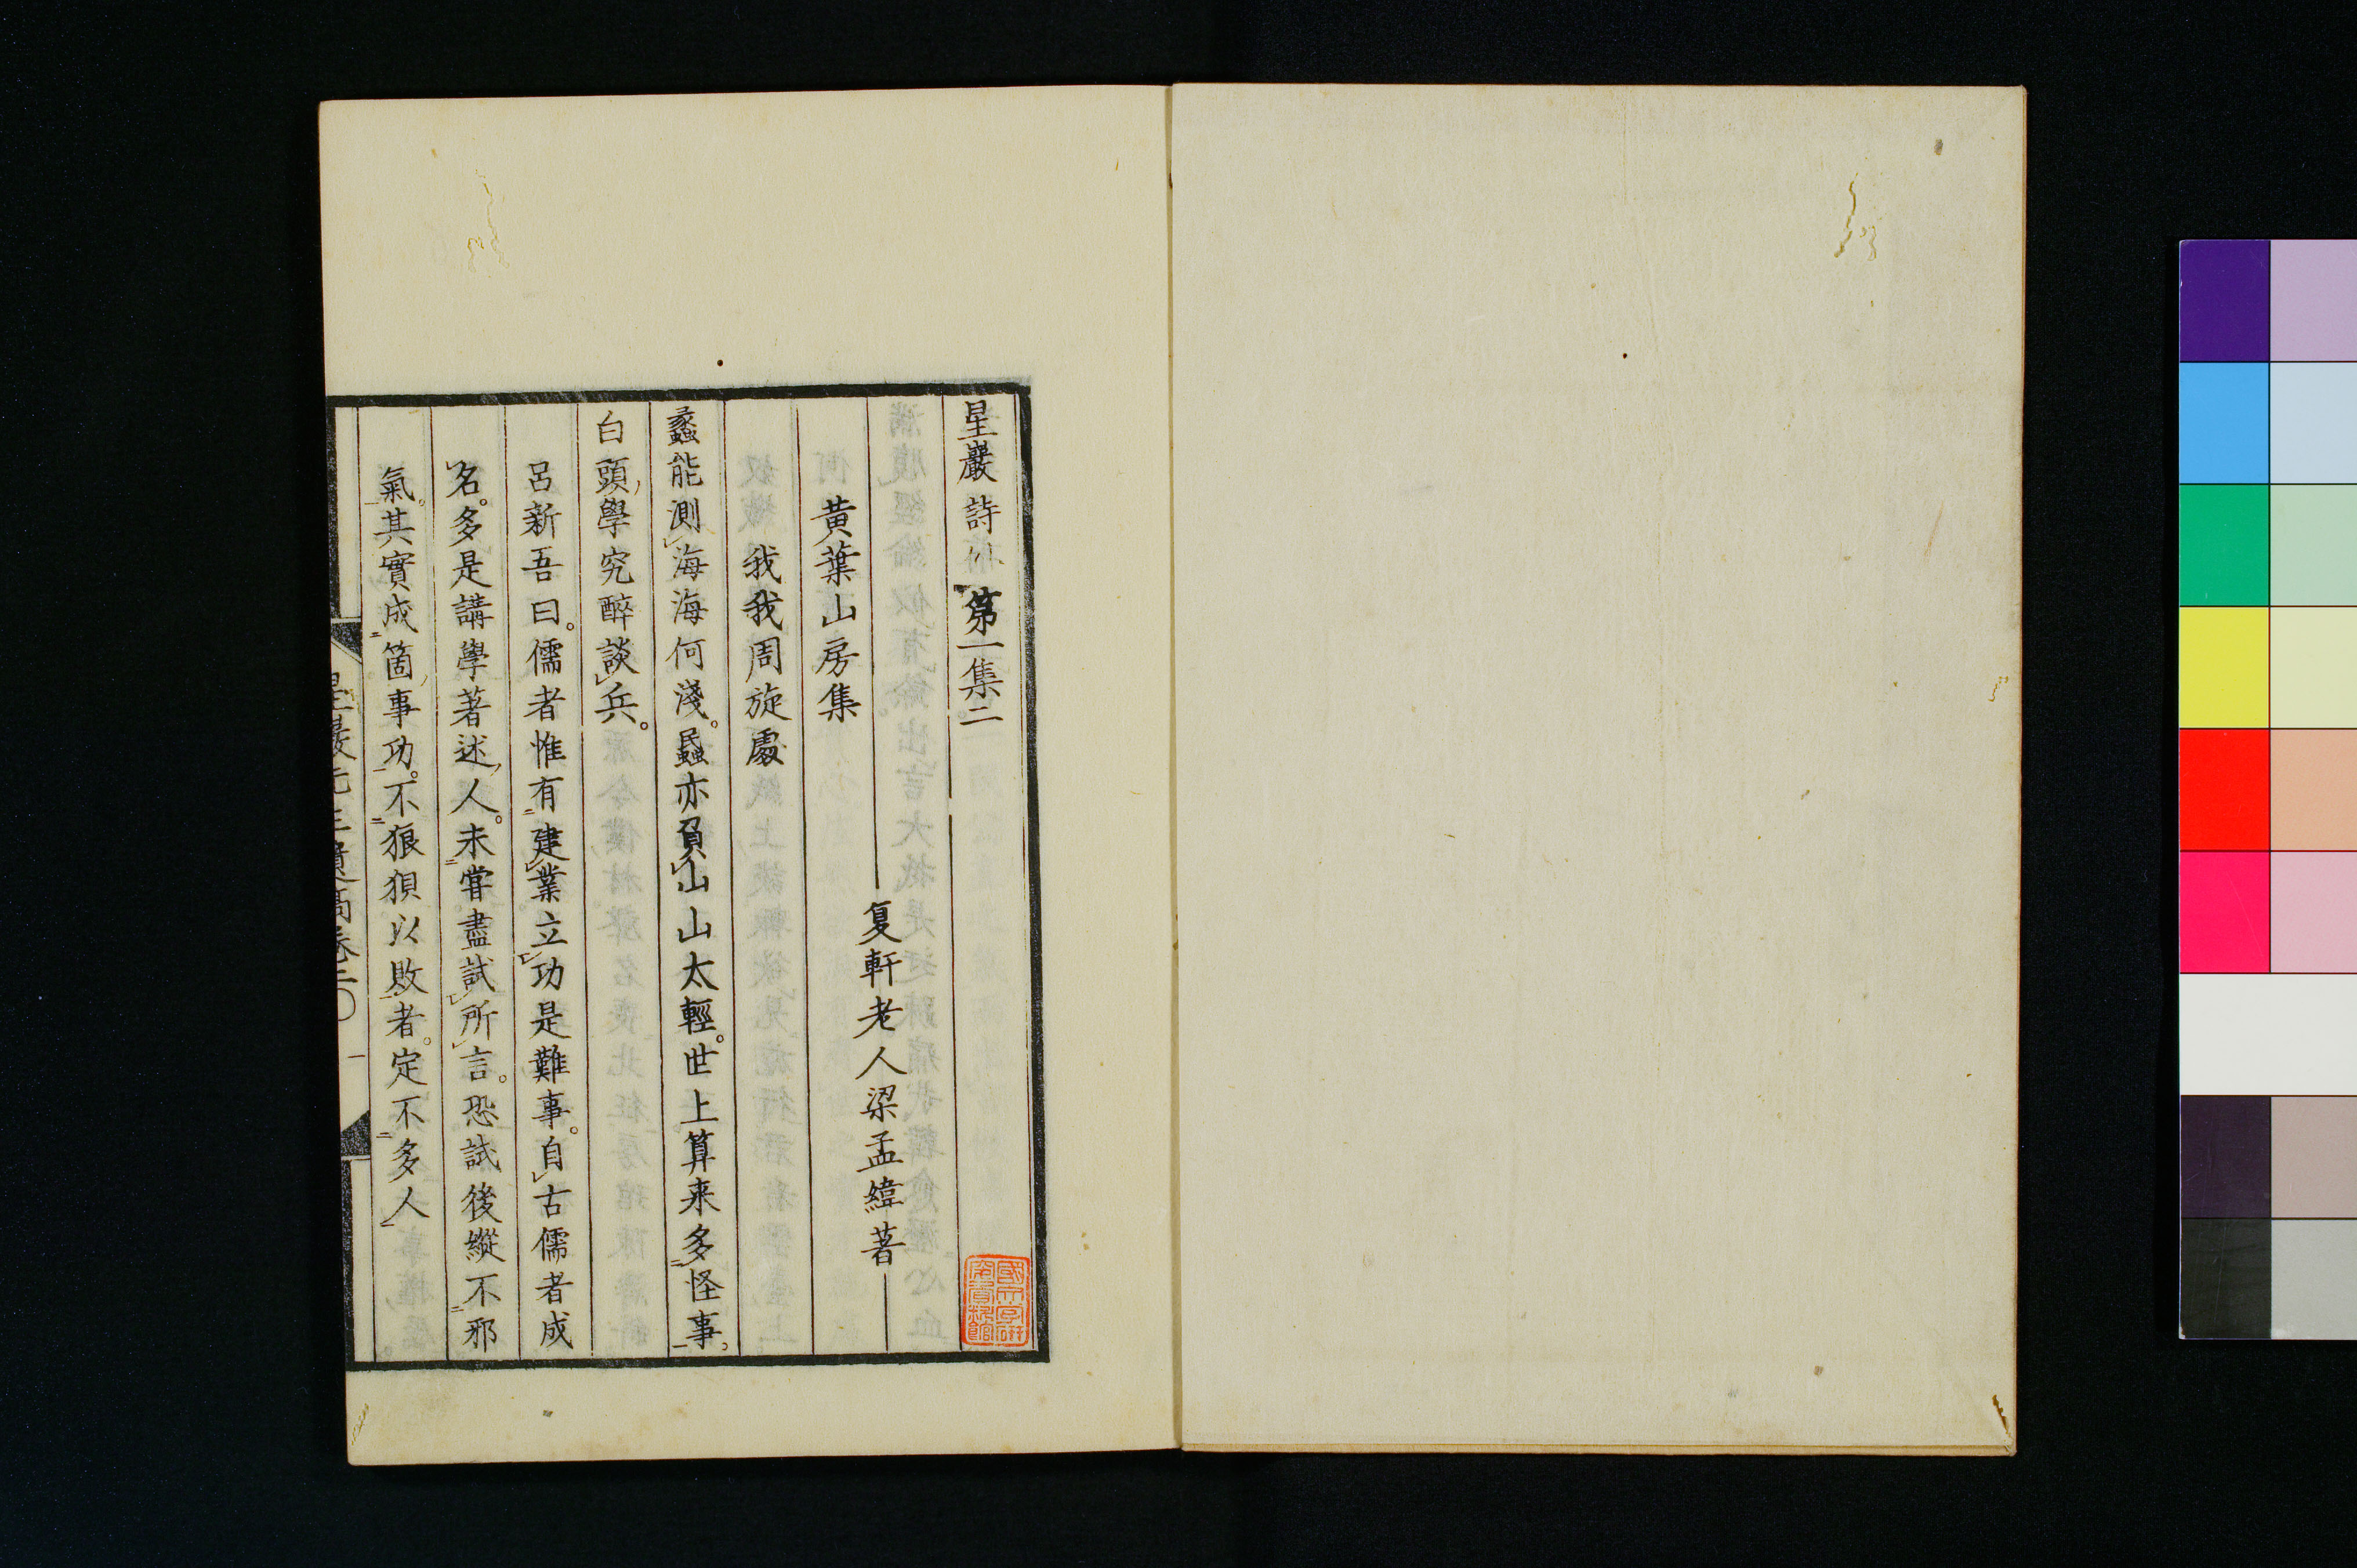 星巖詩 第一集二
复軒老人梁孟緯著
黃葉山房集
我我周旋處
蠡能測海海何淺。蝨亦負山山太輕。世上算来多怪事。
白頭學究醉談兵。
呂新吾曰。儒者惟有建業立功是難事。自古儒者成
名。多是講學著述人。未甞盡試所言。恐試後縱不邪
氣。其實成箇事功。不狼狽以敗者。定不多人